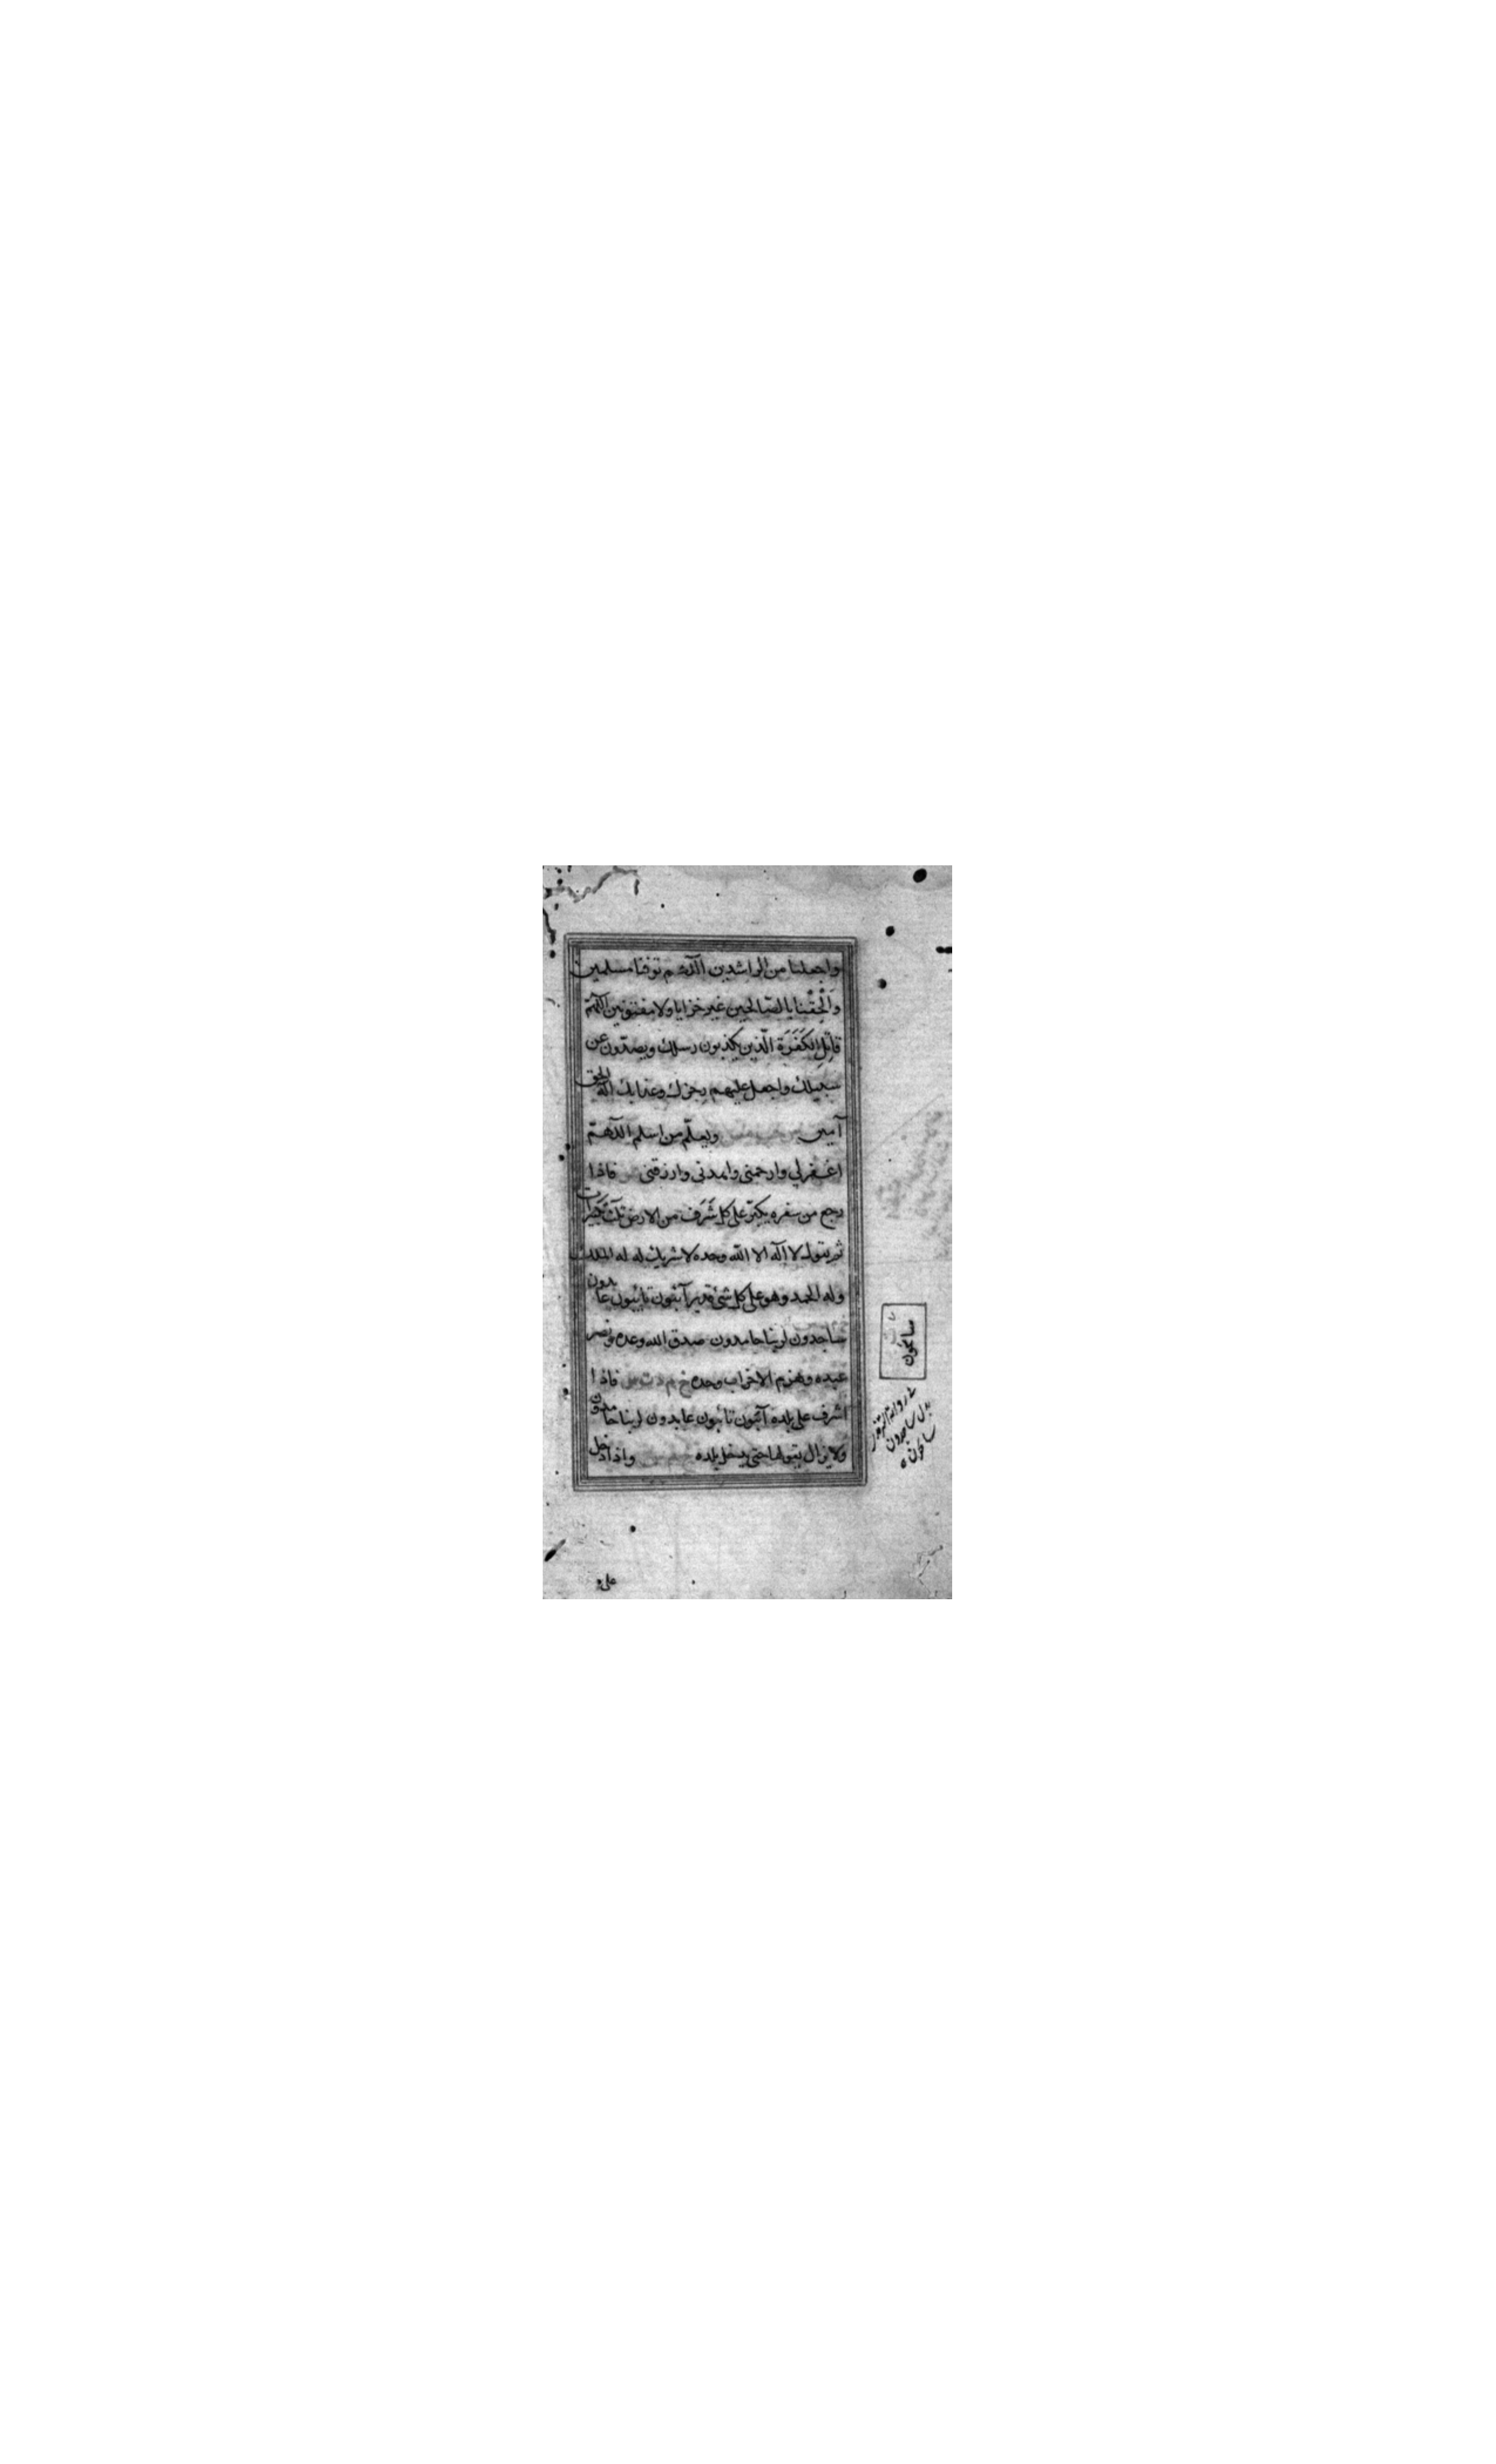 واجعلنا من الراشدين اللهم توفنا مسلمين
وَاَلْحِقْنا بالصّالحين غير خزايا ولا مفتونين اللهمّ
قاتل الكَفَرَة الّذين يكذبون رسلك ويصدّون عن
سبيلك واجعل عليهم رجزك وعذابك اله الحق
آمين ويعلّم من اسلم اللّهمّ
اغفرلي وارحمني واهدني وارزقني فاذا
رجع من سفره يكبّر على كل شَرَف من الارض ثلث تكبيرات
ثم يقول لا اله الا الله وحده لا شريك له له الملك
وله الحمد وهو على كل شئ قدير آئبون تائبون عابدون
ساجدون لربنا حامدون صدق الله وعده ونصر
عبده وهزم الاحزاب وحده خ م د ت س فاذا
اشرف على بلده آئبون تائبون عابدون لربنا حامدون
ولا يزال يقولها حتى يدخل بلده واذا دخل
سائحون
بدل ساجدون
سائحون
على